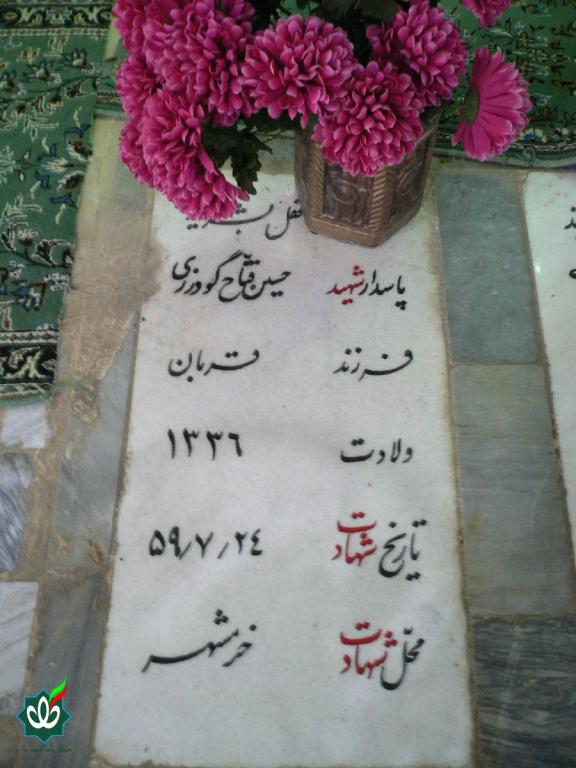 پاسدار شهید حسین فتّاح گودرزی
فرزند قربان
ولادت ۱۳۳۶
تاریخ شهادت ۵۹/۷/۲۴
محلّ شهادت خرمشهر